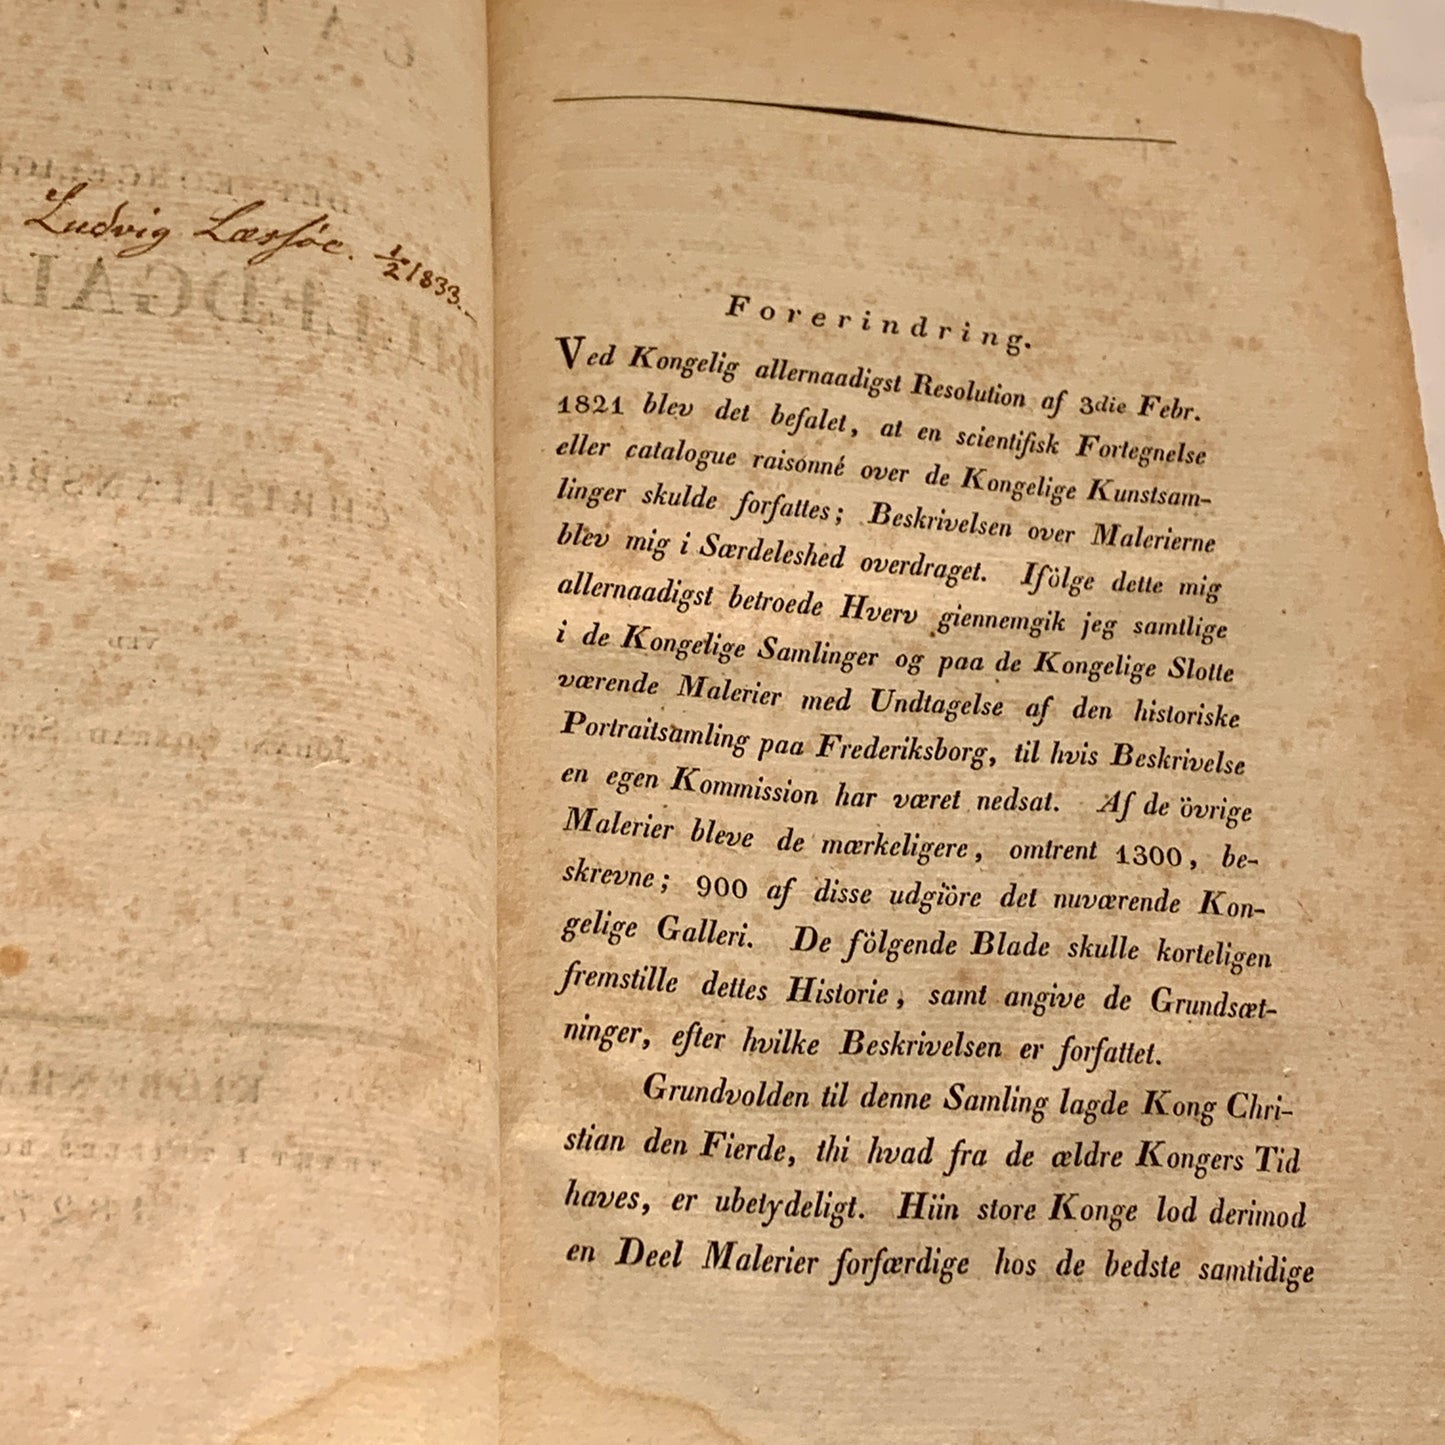 Ludvig Læssøe. 1/2 1833.
Forerindring.
Ved Kongelig allernaadigst Resolution af 3die Febr.
1821 blev det befalet, at en scientifisk Fortegnelse
eller catalogue raisonné over de Kongelige Kunstsam-
linger skulde forfattes; Beskrivelsen over Malerierne
blev mig i Særdeleshed overdraget. Ifölge dette mig
allernaadigst betroede Hverv giennemgik jeg samtlige
i de Kongelige Samlinger og paa de Kongelige Slotte
værende Malerier med Undtagelse af den historiske
Portraitsamling paa Frederiksborg, til hvis Beskrivelse
en egen Kommission har været nedsat. Af de övrige
Malerier bleve de mærkeligere, omtrent 1300, be-
skrevne; 900 af disse udgiöre det nuværende Kon-
gelige Galleri. De fölgende Blade skulle korteligen
fremstille dettes Historie, samt angive de Grundsæt-
ninger, efter hvilke Beskrivelsen er forfattet.
Grundvolden til denne Samling lagde Kong Chri-
stian den Fierde, thi hvad fra de ældre Kongers Tid
haves, er ubetydeligt. Hiin store Konge lod derimod
en Deel Malerier forfærdige hos de bedste samtidige